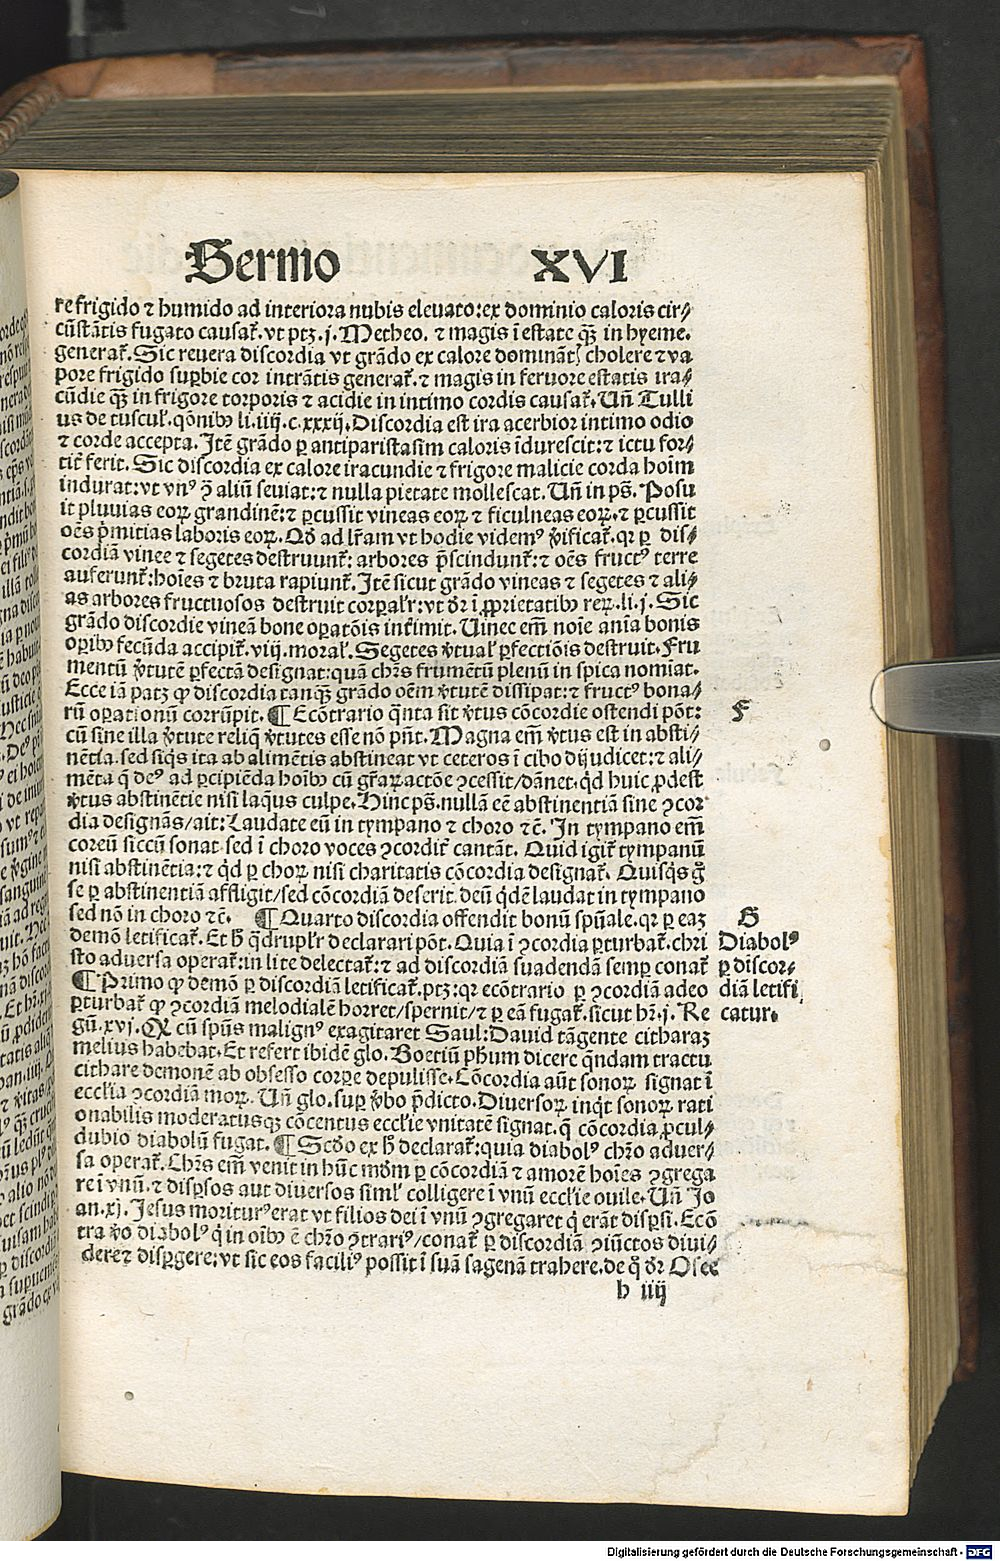 Sermo XVI
re frigido ⁊ humido ad interiora nubis eleuato: ex dominio caloris cir⸗
cũstãtis fugato causat᷑. vt ptꝫ .j. Metheo. ⁊ magis ĩ estate qꝫ̃ in hyeme.
generat᷑. Sic reuera discordia vt grãdo ex calore dominãtꝭ cholere ⁊ va
pore frigido suꝑbie cor intrãtis generat᷑. ⁊ magis in feruore estatis ira⸗
cũdie qꝫ̃ in frigore torporis ⁊ acidie in intimo cordis causat᷑. Vñ Tulli
us de tuscul᷑. q̃oniꝰ li. iiij. c. xxxij. Discordia est ira acerbior intimo odio
⁊ corde accepta. Itẽ grãdo ꝑ antiparistasim caloris ĩdurescit: ⁊ ictu for⸗
tit᷑ ferit. Sic discordia ex calore iracundie ⁊ frigore malicie corda hoĩm
indurat: vt vnꝰ ꝯ̃ aliũ seuiat: ⁊ nulla pietate mollescat. Vñ in ps̃. Posu
it pluuias eoꝝ grandinẽ: ⁊ ꝑcussit vineas eoꝝ ⁊ ficulneas eoꝝ. ⁊ ꝑcussit
oẽs p̃mitias laboris eoꝝ. Qđ ad lr̃am vt hodie videmꝰ ṽificat᷑. qꝛ ꝑ dis⸗
cordiã vinee ⁊ segetes destruunt᷑: arbores p̃scindunt᷑: ⁊ oẽs fructꝰ terre
auferunt᷑: hoĩes ⁊ bruta rapiunt᷑. Itẽ sicut grãdo vineas ⁊ segetes ⁊ ali⸗
as arbores fructuosos destruit corꝑal᷑r: vt dr̃ ĩ ꝓprietatibꝰ reꝝ. li. j. Sic
grãdo discordie vineã bone oꝑatõis inťimit. Vinee em̃ noĩe anĩa bonis
oꝑibꝰ fecũda accipit᷑. viij. moral᷑. Segetes ṽtual᷑ ꝑfectiõis destruit. Fru
mentũ ṽtutẽ ꝑfectã designat: quã chr̃s frumẽtũ plenũ in spica nomĩat.
Ecce iã patꝫ ꝙ discordia tanqꝫ̃ grãdo oẽm ṽtutẽ dissipat: ⁊ fructꝰ bona⸗
rũ oꝑationũ corrũpit. ¶ Ecõtrario q̃nta sit ṽtus cõcordie ostendi põt:
cũ sine illa ṽtute reliq̃ ṽtutes esse nõ pñt. Magna em̃ ṽtus est in absti⸗
nẽtia. sed siq̃s ita ab alimẽtis abstineat vt ceteros ĩ cibo dijudicet: ⁊ ali⸗
mẽta q̃ deꝰ ad ꝑcipiẽda hoĩbꝰ cũ gr̃aꝝ actõe ꝯcessit / dãnet. qd̃ huic ꝓdest
ṽtus abstinẽtie nisi laq̃us culpe. Hinc ps̃. nullã eẽ abstinentiã sine ꝯcor
dia designãs / ait: Laudate eũ in tympano ⁊ choro ⁊c̃. In tympano em̃
coreũ siccũ sonat sed ĩ choro voces ꝯcordit᷑ cantãt. Quid igit᷑ tympanũ
nisi abstinẽtia: ⁊ qd̃ ꝑ choꝝ nisi charitatis cõcordia designat᷑. Quisq̃s g̃
se ꝑ abstinentiã affligit / sed cõcordiã deserit. deũ q̃dẽ laudat in tympano
sed nõ in choro ⁊c̃. ¶ Quarto discordia offendit bonũ spũale. qꝛ ꝑ eaꝫ
demõ letificat᷑. Et h̃ q̃drupl᷑r declarari põt. Quia ĩ ꝯcordia ꝑturbat᷑. chri
sto aduersa operat᷑: in lite delectat᷑: ⁊ ad discordiã suadendã semꝑ conat᷑
¶ Primo ꝙ demõ ꝑ discordiã letificat᷑. ptꝫ: qꝛ ecõtrario ꝑ ꝯcordiã adeo
ꝑturbat᷑ ꝙ ꝯcordiã melodialẽ horret / spernit / ⁊ ꝑ eã fugat᷑. sicut hr̃. j. Re
gũ. xvj. Qꝛ cũ spũs malignꝰ exagitaret Saul: Dauid tãgente citharaꝫ
melius habebat. Et refert ibidẽ glo. Boetiũ ph̃um dicere q̃ndam tractu
cithare demonẽ ab obsesso corꝑe depulisse. Cõcordia aũt sonoꝝ signat ĩ
eccl̃ia ꝯcordiã moꝝ. Vñ glo. suꝑ ṽbo p̃dicto. Diuersoꝝ inq̃t sonoꝝ rati
onabilis moderatusqꝫ cõcentus eccl̃ie vnitatẽ signat. q̃ cõcordia ꝓcul⸗
dubio diabolũ fugat. ¶ Scđo ex h̃ declarat᷑: quia diabolꝰ chr̃o aduer⸗
sa operat᷑. Chr̃s em̃ venit in hũc mũdũm ꝑ cõcordiã ⁊ amorẽ hoĩes ꝯgrega
re ĩ vnũ. ⁊ disꝑsos aut diuersos simĺ colligere ĩ vnũ eccl̃ie ouile. Vñ Jo
an. xj. Jesus moriturꝰ erat vt filios dei ĩ vnũ ꝯgregaret q̃ erãt disꝑsi. Ecõ
tra ṽo diabolꝰ q̃ in oĩbꝰ ẽ chr̃o ꝯtrariꝰ / conat᷑ ꝑ discordiã ꝯiũctos diui⸗
dere ⁊ disꝑgere: vt sic eos faciliꝰ possit ĩ suã sagenã trahere. de q̃ dr̃ Osee
h iiij
F
G
Diabolꝰ
ꝑ discor⸗
diã letifi
catur.
Digitalisierung gefördert durch die Deutsche Forschungsgemeinschaft - DFG